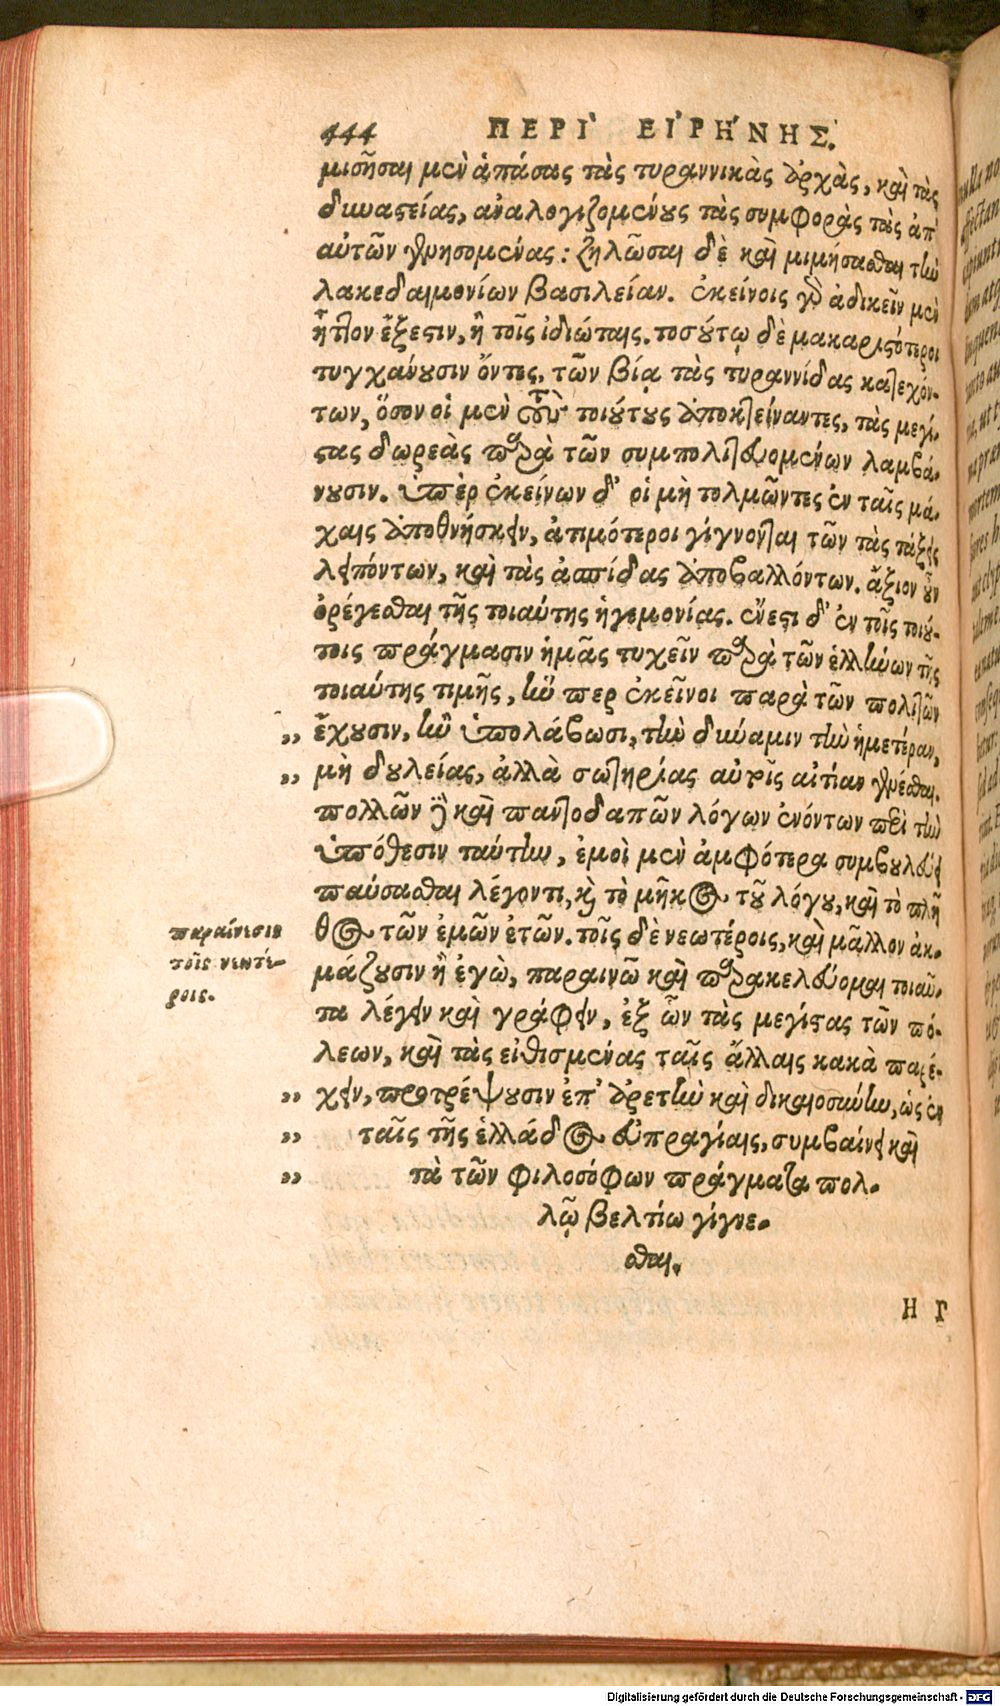 444 ΠΕΡΙ` ΕΙ'ΡΗ'ΝΗΣ.
μισῆσαι μὲν ἁπάσας τὰς τυραννικὰς ἀρχὰς, καὶ τὰς
δυναστείας, ἀναλογιζομένους τὰς συμφορὰς τὰς ἀπ'
αὐτῶν γενησομένας: ζηλῶσαι δὲ καὶ μιμήσασθαι τὴν
λακεδαιμονίων βασιλείαν. ἐκείνοις γὰρ ἀδικεῖν μὲν
ἧττον ἔξεστιν, ἢ τοῖς ἰδιώταις. τοσούτῳ δὲ μακαριστότεροι
τυγχάνουσιν ὄντες, τῶν βίᾳ τὰς τυραννίδας κατεχόν-
των, ὅσον οἱ μὲν τοὺς τοιούτους ἀποκτείναντες, τὰς μεγί-
στας δωρεὰς παρὰ τῶν συμπολιτευομένων λαμβά-
νουσιν. ὑπὲρ ἐκείνων δ' οἱ μὴ τολμῶντες ἐν ταῖς μά-
χαις ἀποθνήσκειν, ἀτιμότεροι γίγνονται τῶν τὰς τάξεις
λειπόντων, καὶ τὰς ἀσπίδας ἀποβαλλόντων. ἄξιον οὖν
ὀρέγεσθαι τῆς τοιαύτης ἡγεμονίας. ἔνεστι δ' ἐν τοῖς τοιού-
τοις πράγμασιν ἡμᾶς τυχεῖν παρὰ τῶν ἑλλήνων τῆς
τοιαύτης τιμῆς, ἥν περ ἐκεῖνοι παρὰ τῶν πολιτῶν
„ ἔχουσιν, ἢν ὑπολάβωσι, τὴν δύναμιν τὴν ἡμετέραν,
„ μὴ δουλείας, ἀλλὰ σωτηρίας αὐτοῖς αἰτίαν γενέσθαι.
πολλῶν δὲ καὶ παντοδαπῶν λόγων ἐνόντων περὶ τὴν
ὑπόθεσιν ταύτην, ἐμοὶ μὲν ἀμφότερα συμβουλεύει
παύσασθαι λέγοντι, καὶ τὸ μῆκος τοῦ λόγου, καὶ τὸ πλῆ
θος τῶν ἐμῶν ἐτῶν. τοῖς δὲ νεωτέροις, καὶ μᾶλλον ἀκ-
μάζουσιν ἢ ἐγὼ, παραινῶ καὶ παρακελεύομαι τοιαῦ-
τα λέγειν καὶ γράφειν, ἐξ ὧν τὰς μεγίστας τῶν πό-
λεων, καὶ τὰς εἰθισμένας ταῖς ἄλλαις κακὰ παρέ-
„ χειν, προτρέψουσιν ἐπ' ἀρετὴν καὶ δικαιοσύνην, ὡς ἐν
„ ταῖς τῆς ἑλλάδος εὐπραγίαις, συμβαίνει καὶ
„ τὰ τῶν φιλοσόφων πράγματα πολ-
λῷ βελτίω γίγνε-
σθαι.
παραίνεσις
τοῖς νεωτέ-
ροις.
Η Γ
Digitalisierung gefördert durch die Deutsche Forschungsgemeinschaft - DFG